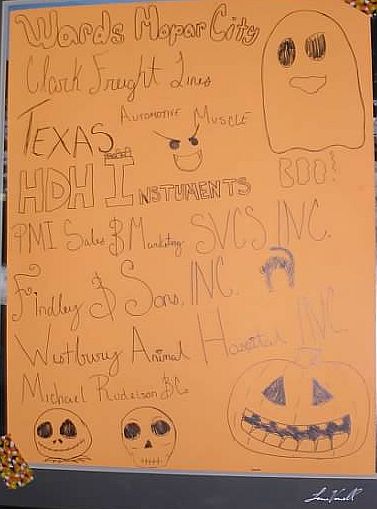 Wards Mopar City
Clark Freight Lines
Automotive Muscle
Texas
HDH Instuments
BOO!
PMI Sales & Marketing SVCS INC.
Findley & Sons, INC.
Westbury Animal Hospital INC.
Michael Rudelson & Co